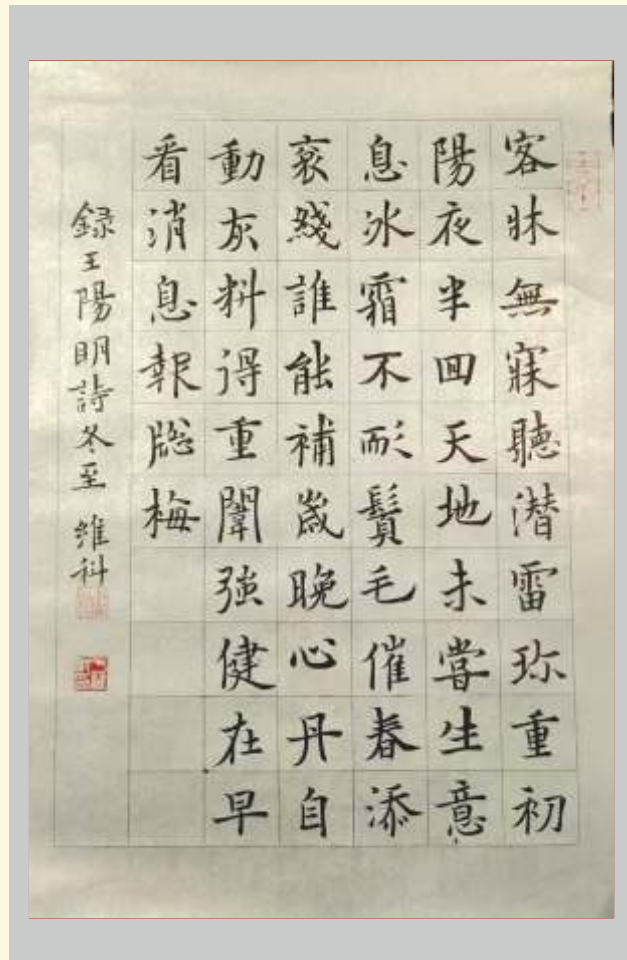 客牀無寐聽潜雷珎重初
陽夜半回天地未嘗生意
息冰霜不耐鬢毛催春添
衮綫誰能補歲晚心丹自
動灰料得重闈強健在早
看消息報牕梅
録王陽明詩冬至 維科